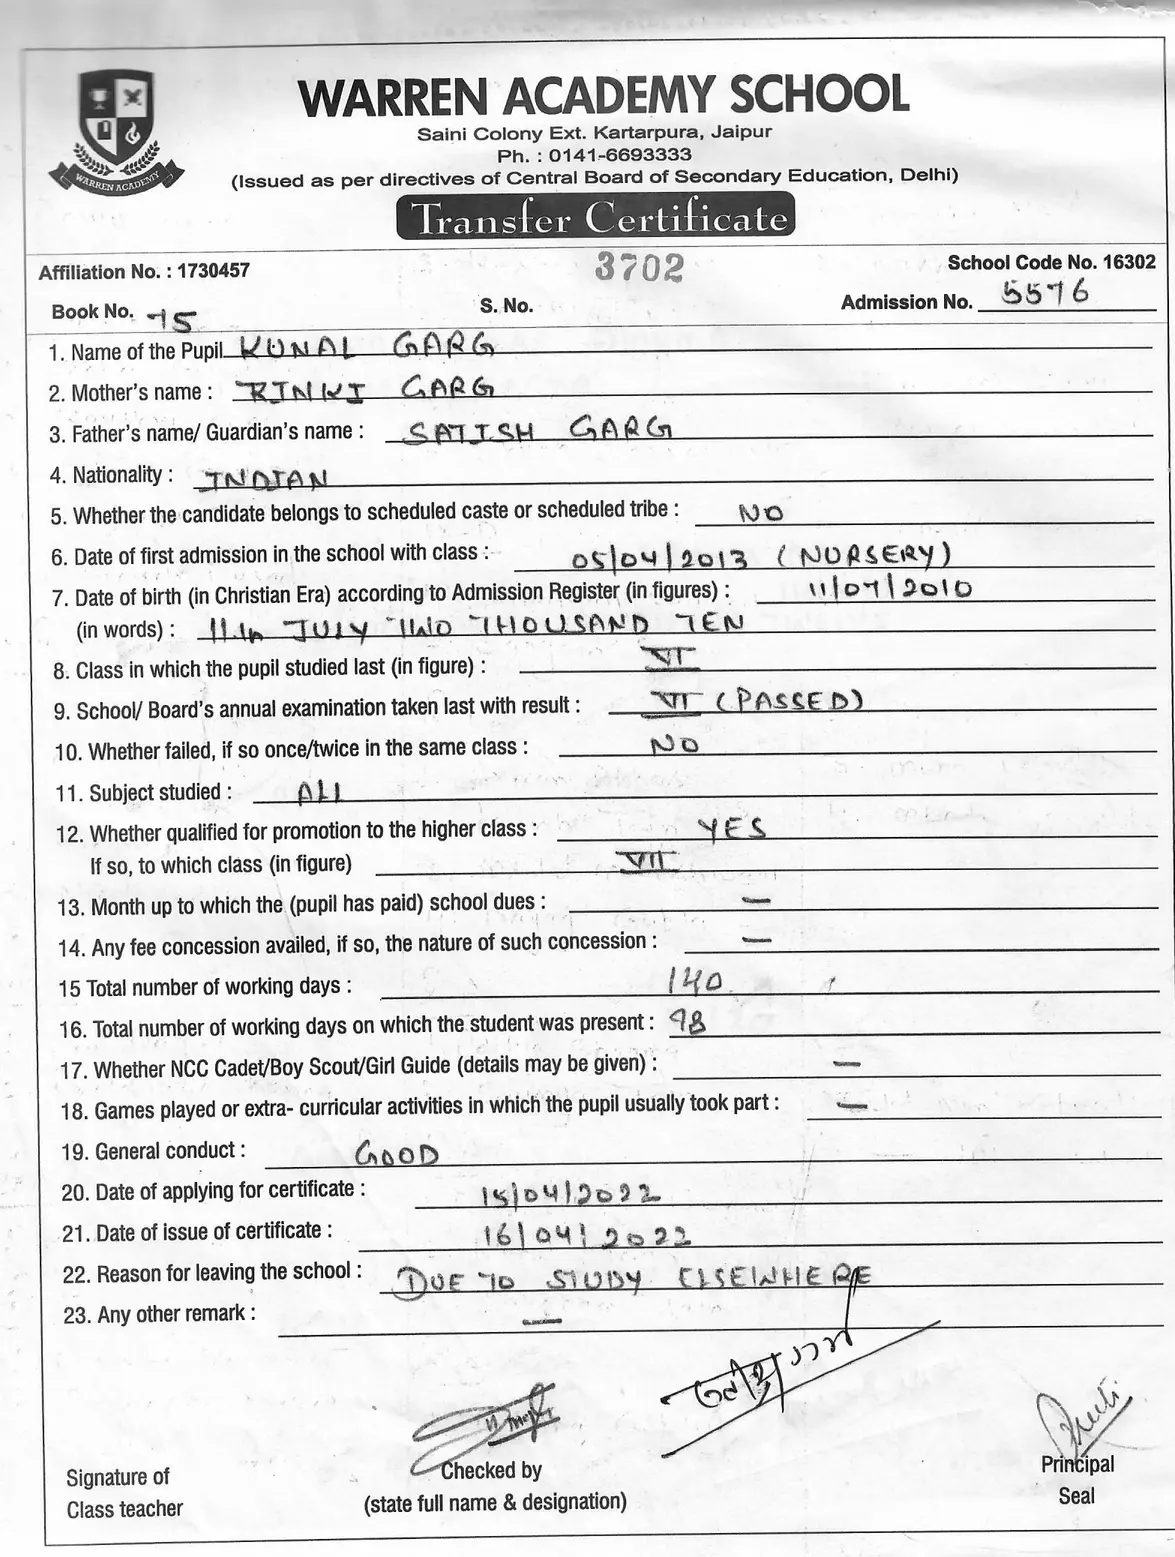 WARREN ACADEMY SCHOOL
Saini Colony Ext. Kartarpura, Jaipur
Ph. : 0141-6693333
(Issued as per directives of Central Board of Secondary Education, Delhi)
WARREN ACADEMY
Transfer Certificate
Affiliation No. : 1730457 3702 School Code No. 16302
Book No. 75 S. No. Admission No. 5576
1. Name of the Pupil KUNAL GARG
2. Mother's name : RINKI GARG
3. Father's name/ Guardian's name : SATISH GARG
4. Nationality : INDIAN
5. Whether the candidate belongs to scheduled caste or scheduled tribe : NO
6. Date of first admission in the school with class : 05/04/2013 (NURSERY)
7. Date of birth (in Christian Era) according to Admission Register (in figures) : 11/07/2010
(in words) : 11th JULY TWO THOUSAND TEN
8. Class in which the pupil studied last (in figure) : VI
9. School/ Board's annual examination taken last with result : VI (PASSED)
10. Whether failed, if so once/twice in the same class : NO
11. Subject studied : ALL
12. Whether qualified for promotion to the higher class : YES
If so, to which class (in figure) VII
13. Month up to which the (pupil has paid) school dues : —
14. Any fee concession availed, if so, the nature of such concession : —
15 Total number of working days : 140
16. Total number of working days on which the student was present : 98
17. Whether NCC Cadet/Boy Scout/Girl Guide (details may be given) : —
18. Games played or extra- curricular activities in which the pupil usually took part : —
19. General conduct : GOOD
20. Date of applying for certificate : 15/04/2022
21. Date of issue of certificate : 16/04/2022
22. Reason for leaving the school : DUE TO STUDY ELSEWHERE
23. Any other remark : —
Signature of Checked by Principal
Class teacher (state full name & designation) Seal